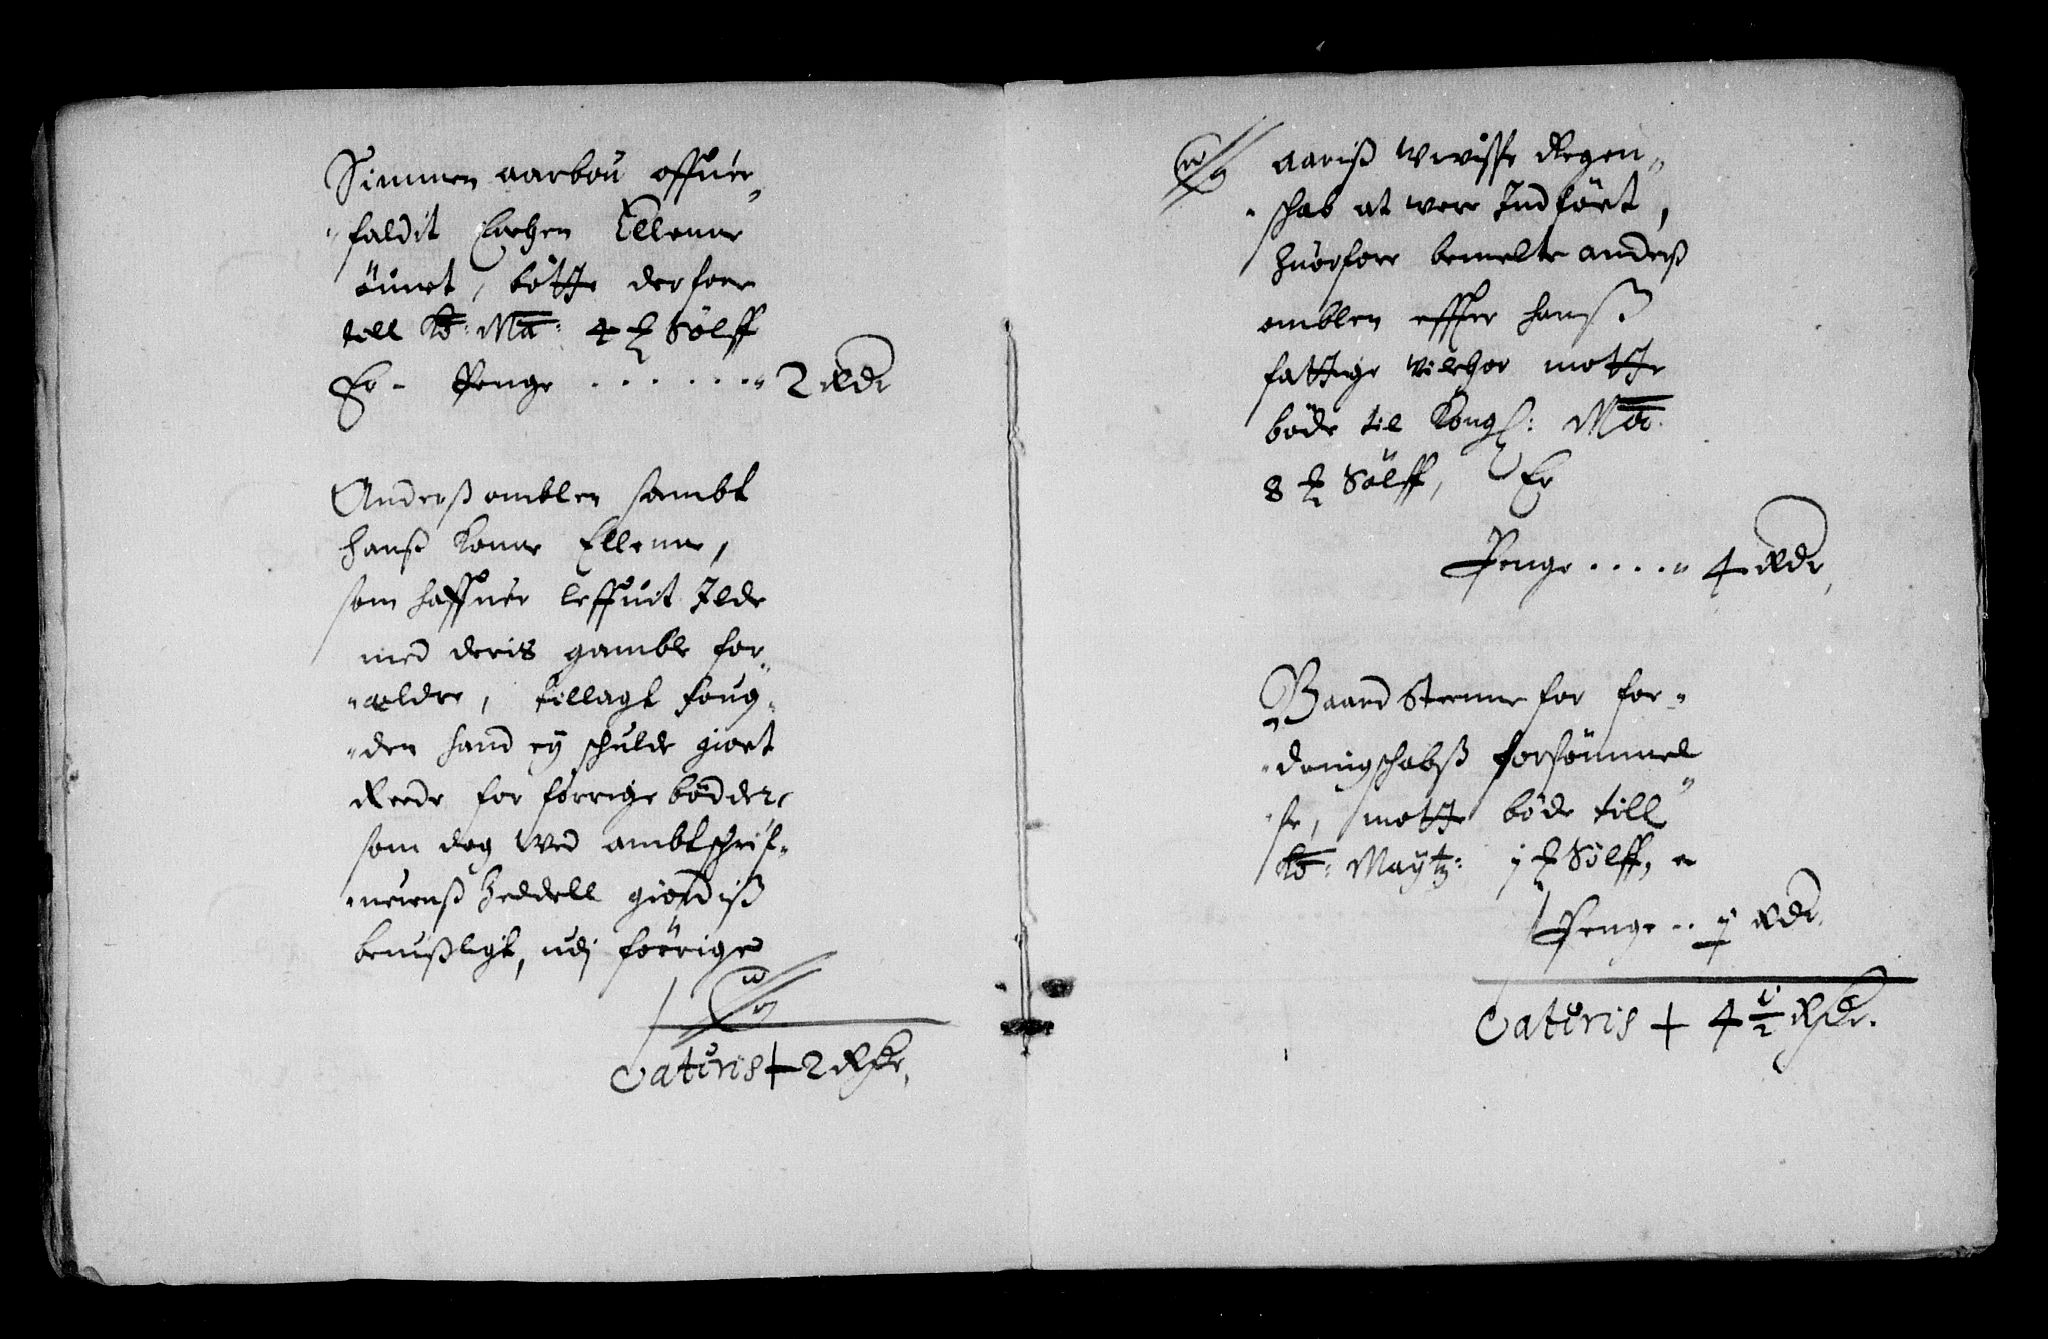 Simmen aarbou offuer„
„faldit Carhen Ellenne
öuuet, bötte derfore
till Ko: Ma: 4 Sölff
Er – Penge . . . . . . „ 2 Rdr
Anderß omblen sambt
hanß Konne Ellenne,
som haffuer leffuit Ilde
med deris gamble for„
„ældre, tillagt foug„
„den hand ey schulde giort
Reede for forrige bödder
som dog wed ambtschrif„
„uerenß Zeddell giordiß
beuißligt, udj forrige
Lateris + 2 Rdr.
aariß wwisse Regen„
„schab at were Indfört,
huorfore bemelte anderß
omblen effter hanß
fattige vilchor motte
böde til Kongl: Ma:
8 Sölff, Er
Penge . . . . „ 4 Rdr,
Baard Steenne for for„
„dringschabß forsömmel„
„se, motte böde till
Ko: Maytz: j Sölff, er
Penge . . Rdr.
Lateris + 4 1/2 Rdr.